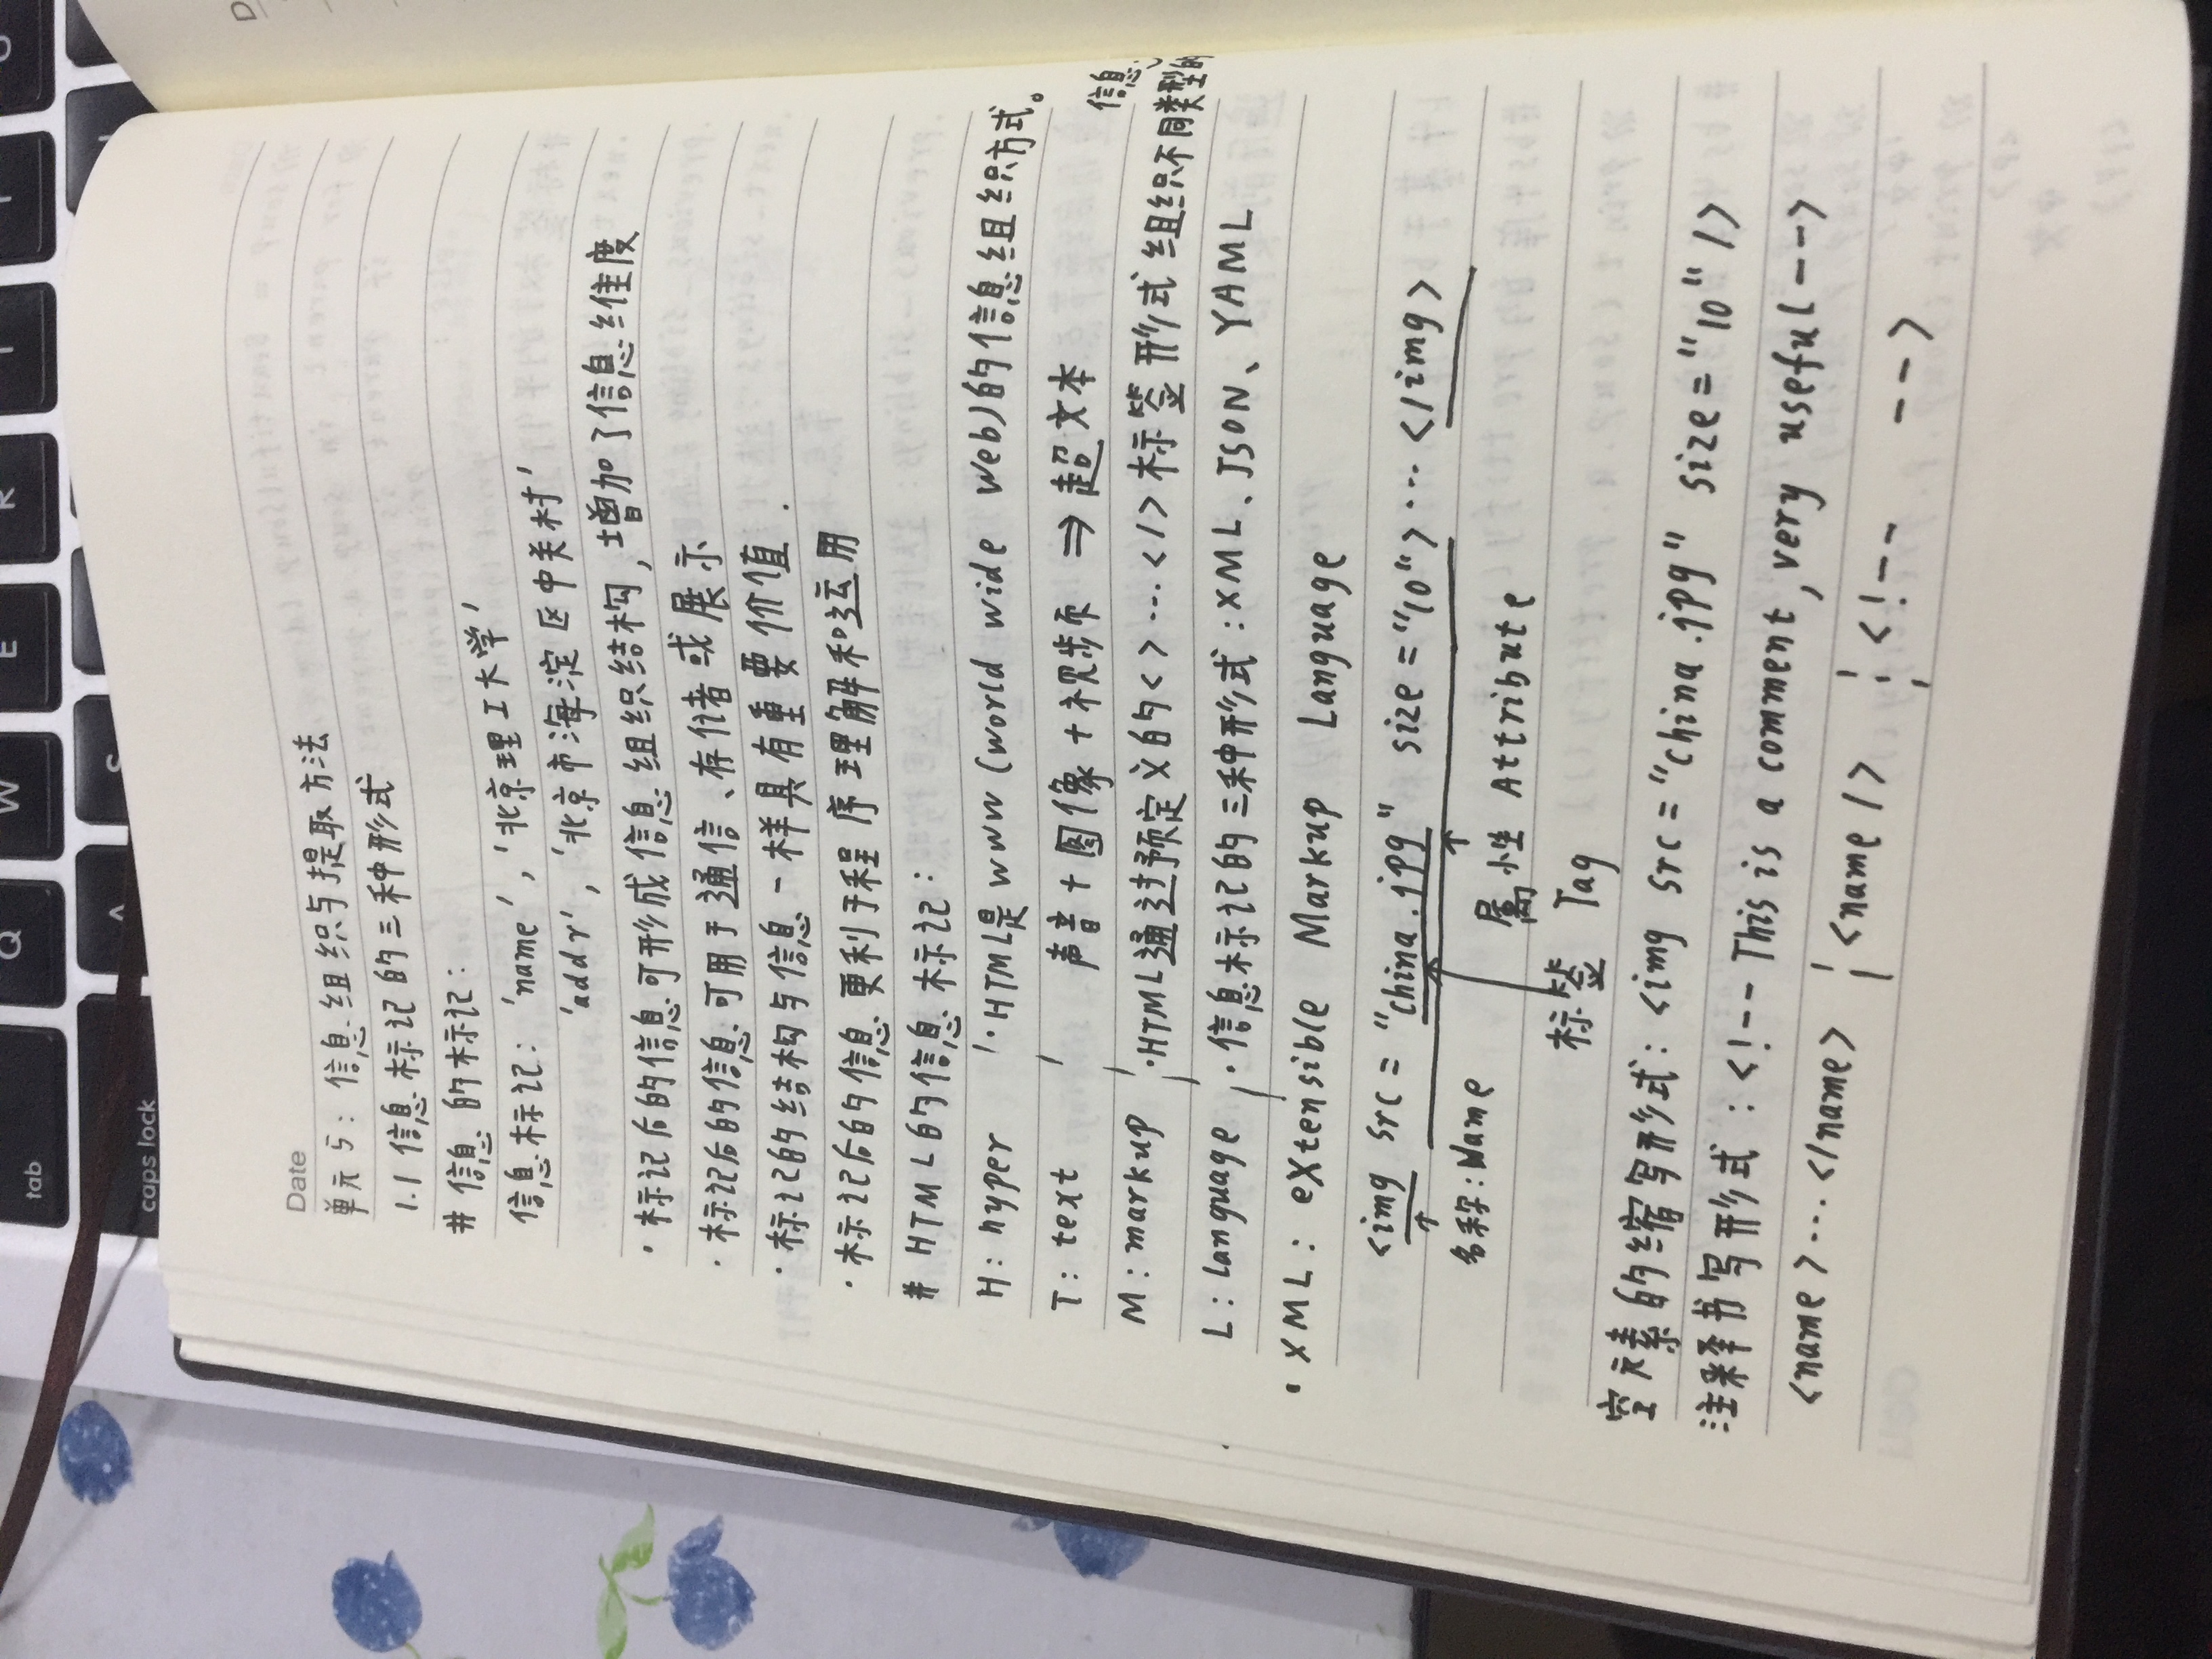 Date
单元5：信息组织与提取方法
1.1 信息标记的三种形式
# 信息的标记：
信息标记：'name'，'北京理工大学'
'addr'，'北京市海淀区中关村'
·标记后的信息可形成信息组织结构，增加了信息维度
·标记后的信息可用于通信、存储或展示
·标记的结构与信息一样具有重要价值．
·标记后的信息更利于程序理解和运用
# HTML的信息标记：
H：hyper ·HTML是www（world wide web)的信息组织方式。
T：text 声音+图像+视频 ⇒ 超文本
信息
M：markup ·HTML通过预定义的<>...</>标签形式组织不同类型的
L：language ·信息标记的三种形式：XML、JSON、YAML
·XML：eXtensible Markup Language
<img src="china.jpg" size="10">...</img>
名称：Name 属性 Attribute
标签 Tag
空元素的缩写形式：<img src="china.jpg" size="10"/>
注释书写形式：<!--This is a comment,very useful-->
<name>...</name> <name/> <!-- -->
tab
caps lock
Q
W
E
R
A
S